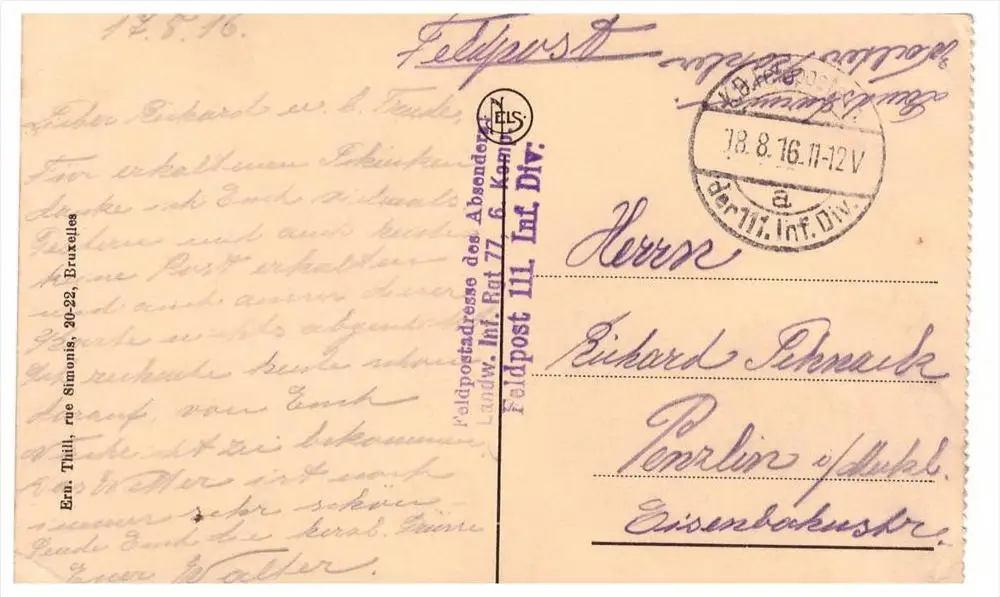 17.8.16.
Feldpost
Lieber Richard u. l. Trude,
Für erhaltenen Schinken
danke ich Euch vielmals
Gestern und auch heute
keine Post erhalten
und auch ausser dieser
Karte nichts
heute schon
darauf, von Euch
zu bekommen,
das Wetter ist noch
immer sehr schön
Sende Euch herzl. Grüsse
Euer Walter.
Ern. Thill, rue Simonis, 20-22, Bruxelles
NELS
Feldpostadresse des Absenders:
Landw. Inf. Rgt 77, 6. Komp.
Feldpost 111. Inf. Div.
Walter
18.8.16.11-12V
a
der 111. Inf. Div.
Herrn
Richard Schnack
Penzlin i/Meckl.
Eisenbahnstr.